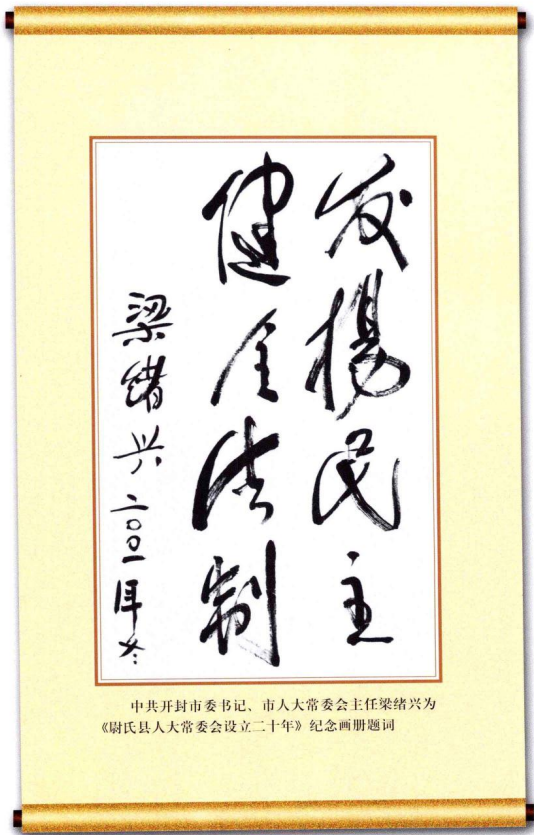 发揚民主
健全法制
梁绪兴 二〇〇一年冬
中共开封市委书记、市人大常委会主任梁绪兴为
《尉氏县人大常委会设立二十年》纪念画册题词